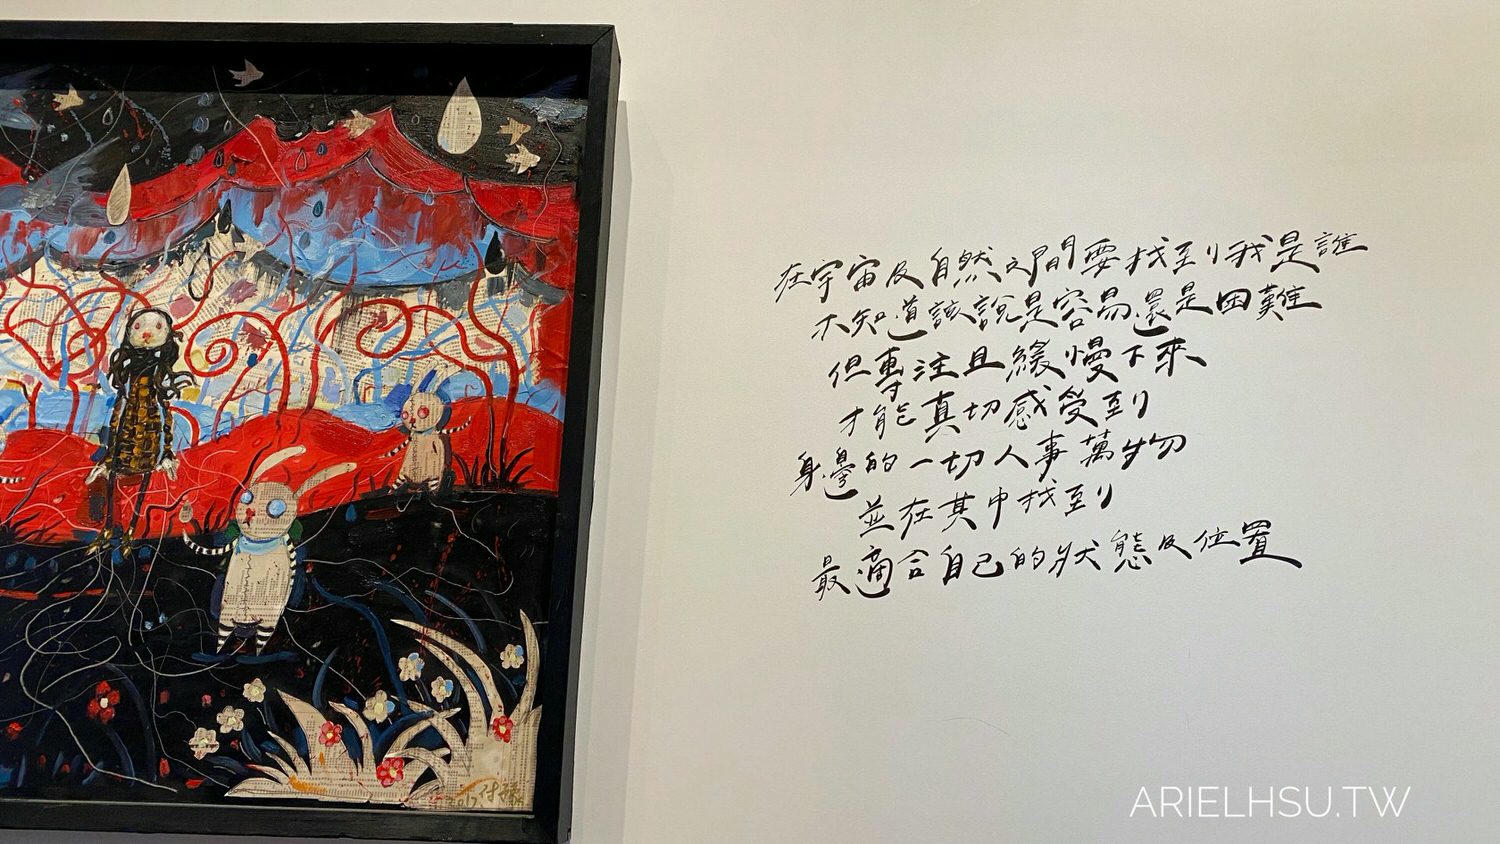 在宇宙及自然之間要找到我是誰
不知道該說是容易還是困難
但專注且緩慢下來
才能真切感受到
身邊的一切人事萬物
並在其中找到
最適合自己的狀態及位置
2017
ARIELHSU.TW